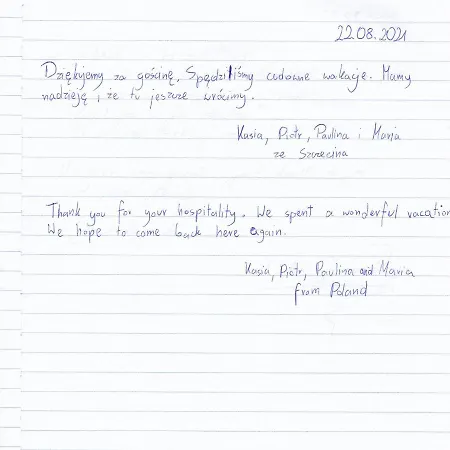 22.08.2021
Dziękujemy za gościnę, Spędziliśmy cudowne wakacje. Mamy
nadzieję, że tu jeszcze wrócimy.
Kasia, Piotr, Paulina i Maria
ze Szczecina
Thank you for your hospitality. We spent a wonderful vacation
We hope to come back here again.
Kasia, Piotr, Paulina and Maria
from Poland